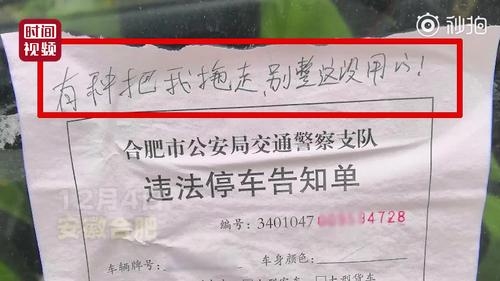 时间
视频
秒拍
有种把我拖走,别整这没用的!
合肥市公安局交通警察支队
违法停车告知单
12月4日
安徽合肥
编号:3401047 009584728
车辆牌号: 车身颜色:
小型货车 大型货车